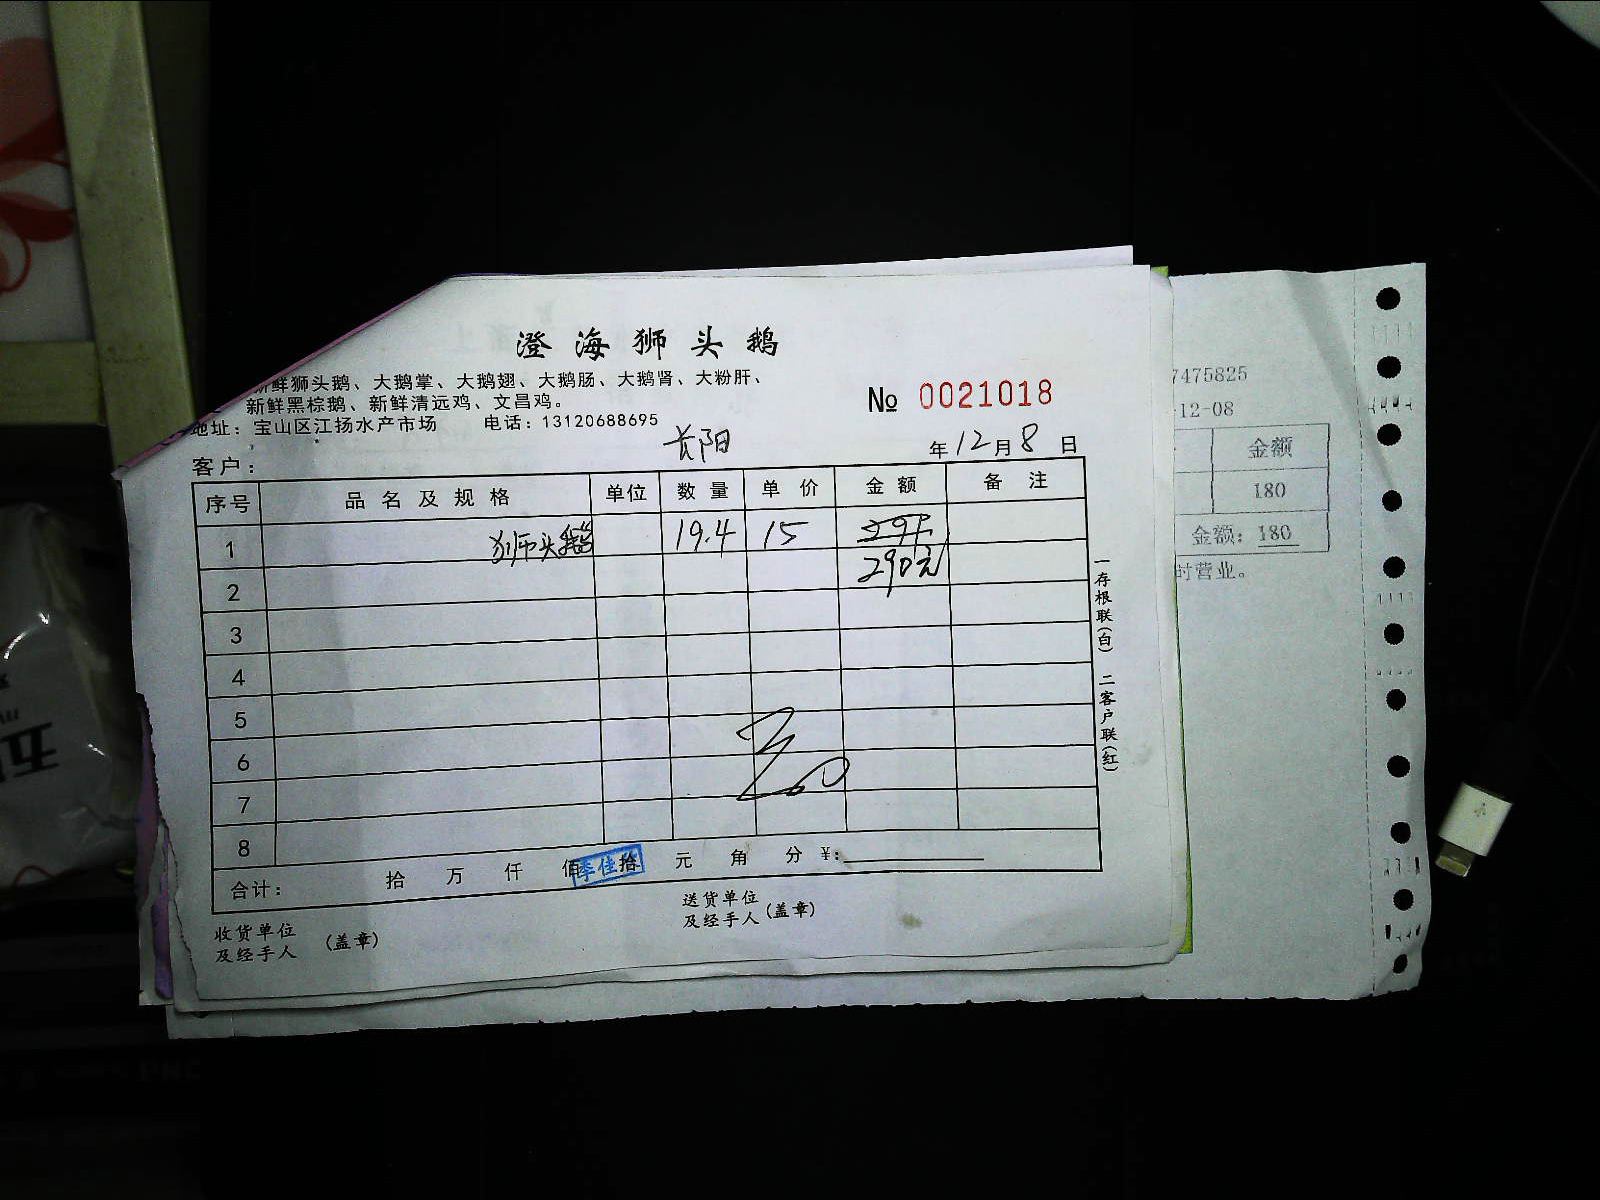 澄海狮头鹅
新鲜狮头鹅、大鹅掌、大鹅翅、大鹅肠、大鹅肾、大粉肝、
新鲜黑棕鹅、新鲜清远鸡、文昌鸡。
地址：宝山区江扬水产市场 电话：13120688695
№ 0021018
客户： 长阳 年12月8日
序号 品名及规格 单位 数量 单价 金额 备注
1 狮头鹅 19.4 15 291
2 290元
3
4
5
6
7
8
合计： 拾 万 仟 佰 拾 元 角 分 ¥：
李佳
收货单位
及经手人 （盖章）
送货单位
及经手人（盖章）
一存根联（白） 二客户联（红）
7475825
-12-08
金额
180
金额：180
时营业。
五